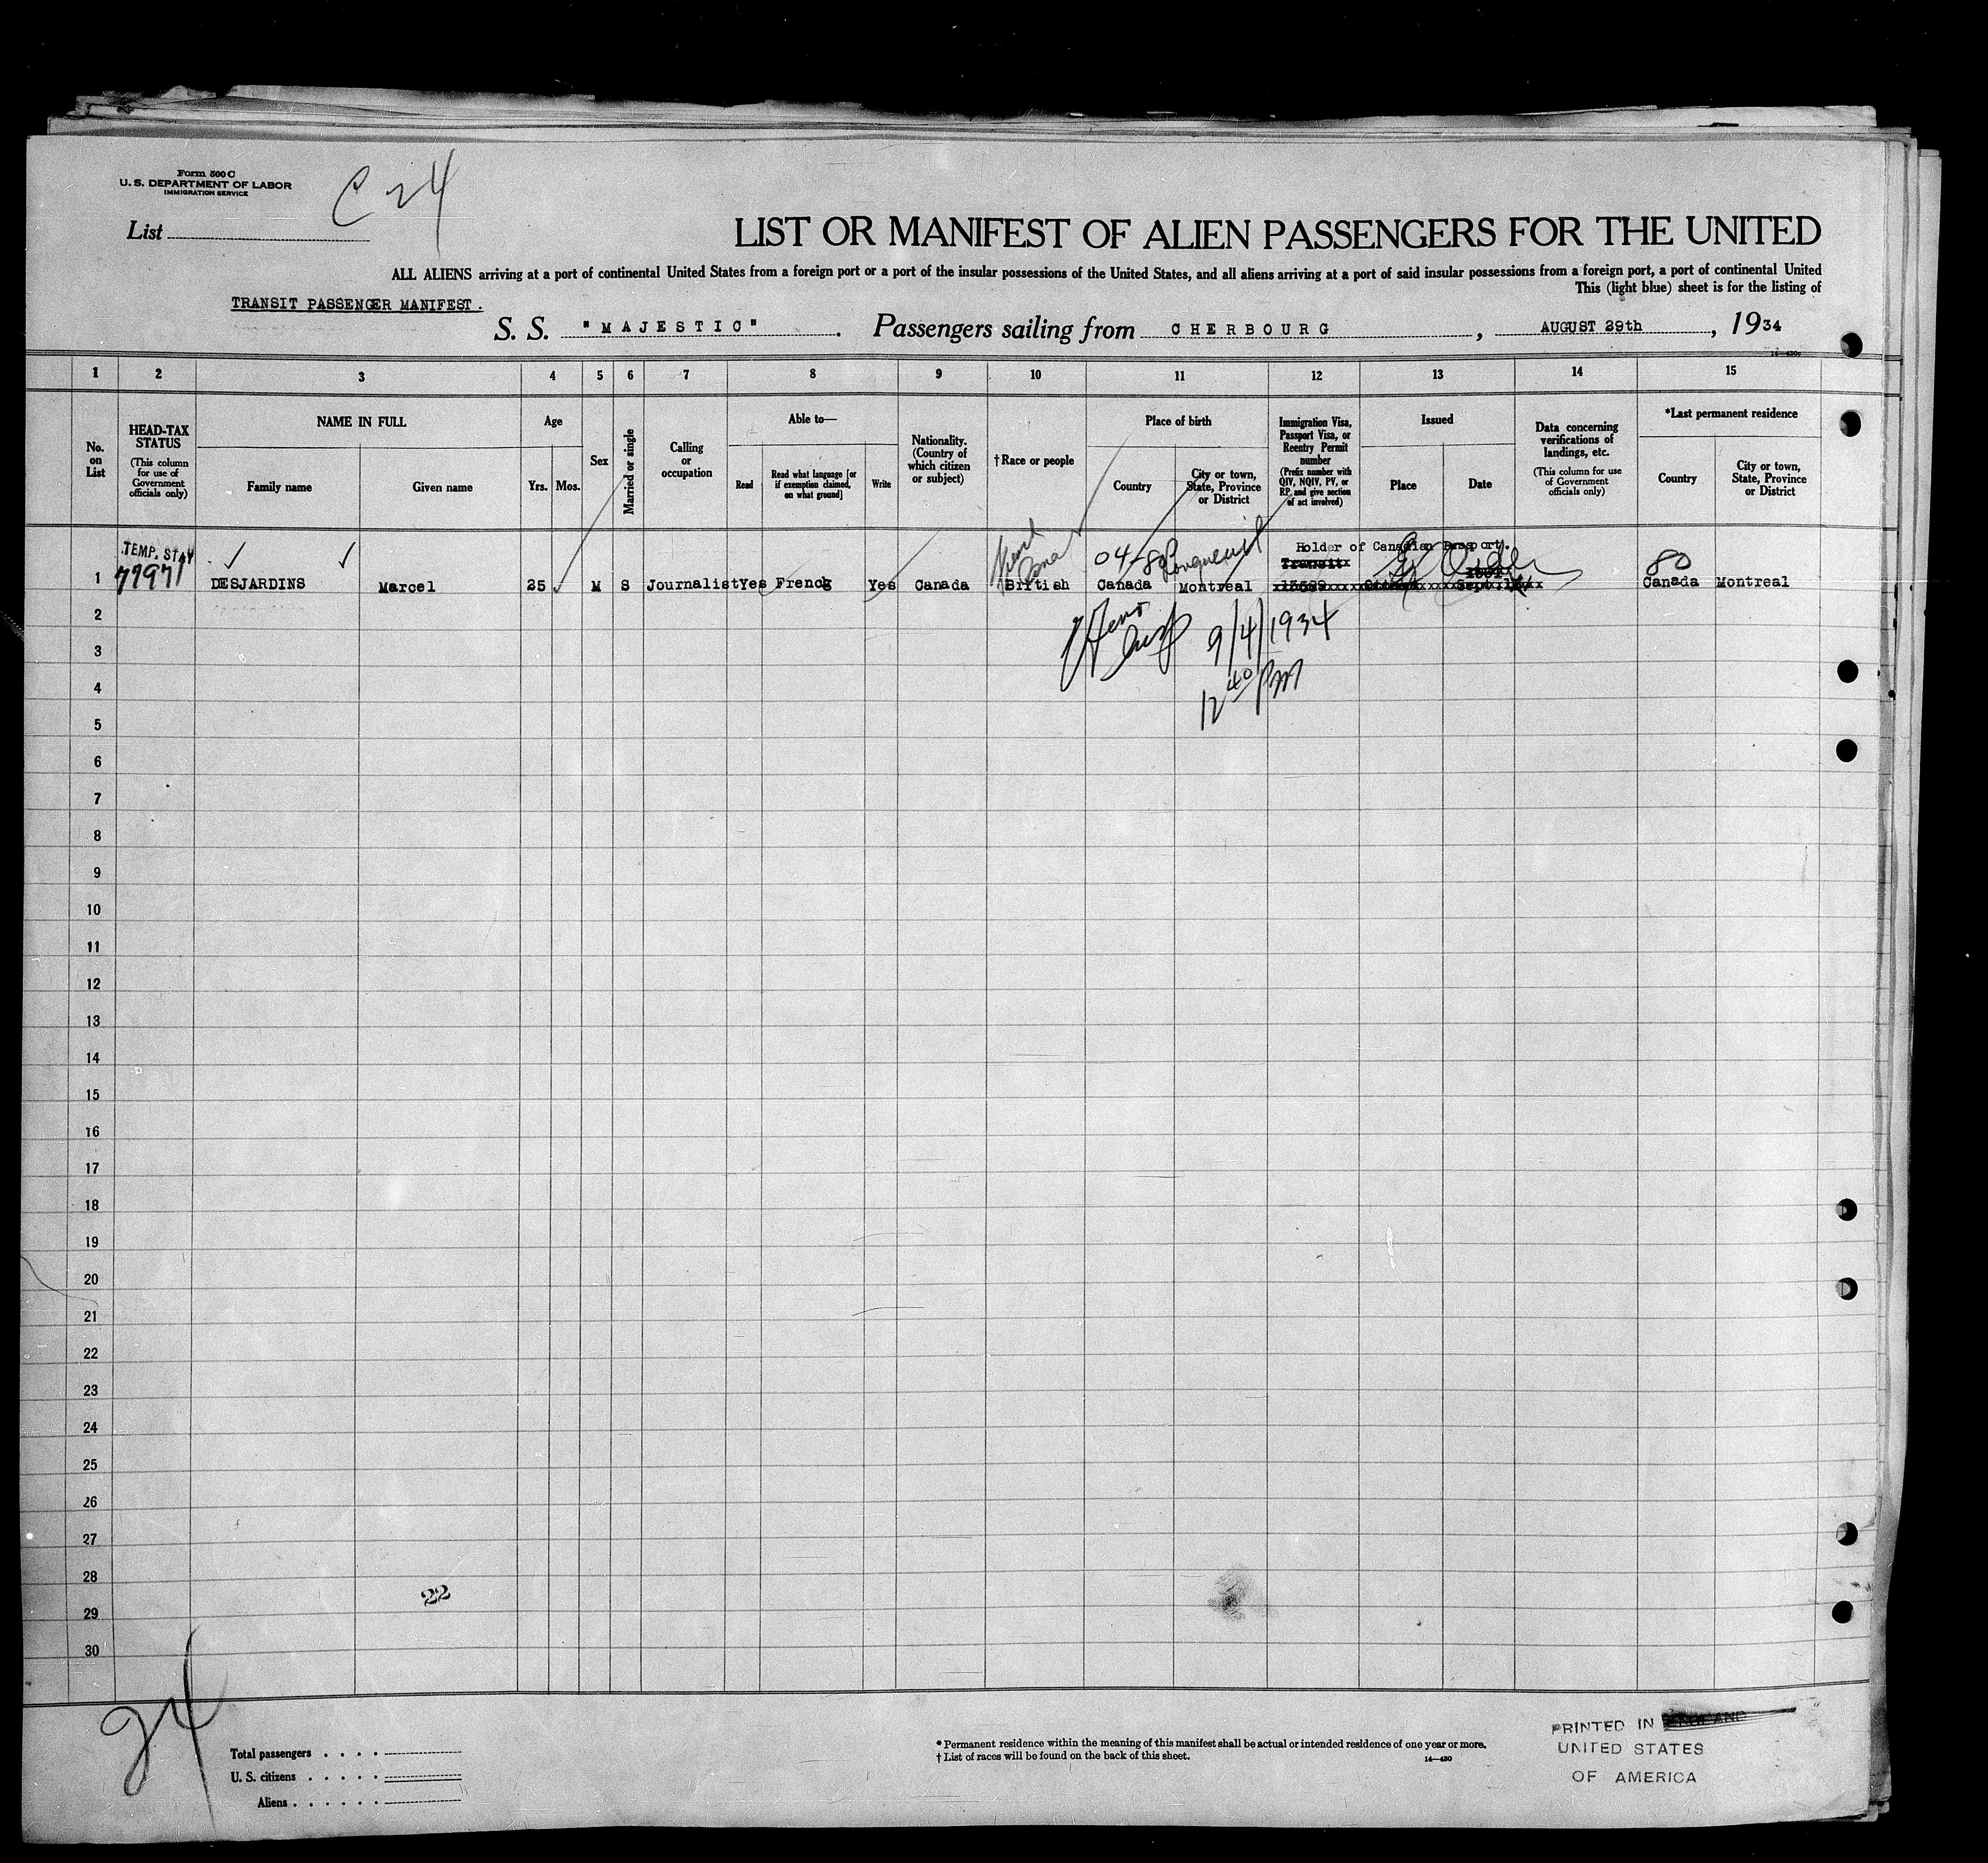 Form 500 C
U. S. DEPARTMENT OF LABOR
IMMIGRATION SERVICE
C 24
List
LIST OR MANIFEST OF ALIEN PASSENGERS FOR THE UNITED
ALL ALIENS arriving at a port of continental United States from a foreign port or a port of the insular possessions of the United States, and all aliens arriving at a port of said insular possessions from a foreign port, a port of continental United
This (light blue) sheet is for the listing of
TRANSIT PASSENGER MANIFEST.
S. S. "MAJESTIC". Passengers sailing from CHERBOURG, AUGUST 29th, 1934
1 2 3 4 5 6 7 8 9 10 11 12 13 14 15
No. on List
HEAD-TAX STATUS
(This column for use of Government officials only)
NAME IN FULL
Family name Given name
Age
Yrs. Mos.
Sex
Married or single
Calling or occupation
Able to—
Read
Read what language [or if exemption claimed, on what ground]
Write
Nationality. (Country of which citizen or subject)
†Race or people
Place of birth
Country
City or town, State, Province or District
Immigration Visa, Passport Visa, or Reentry Permit number
(Prefix number with QIV, NQIV, PV, or RP, and give section of act involved)
Issued
Place Date
Data concerning verifications of landings, etc.
(This column for use of Government officials only)
*Last permanent residence
Country
City or town, State, Province or District
TEMP. STAY
04-80 Longueuil
Holder of Canadian Passport.
Transit
80
1 DESJARDINS Marcel 25 M S Journalist Yes French Yes Canada British Canada Montreal Canada Montreal
2
9/4/1934
3
12 40 PM
4
5
6
7
8
9
10
11
12
13
14
15
16
17
18
19
20
21
22
23
24
25
26
27
28
22
29
30
24
Total passengers
U. S. citizens
Aliens
* Permanent residence within the meaning of this manifest shall be actual or intended residence of one year or more.
† List of races will be found on the back of this sheet.
14—430
PRINTED IN ENGLAND
UNITED STATES
OF AMERICA